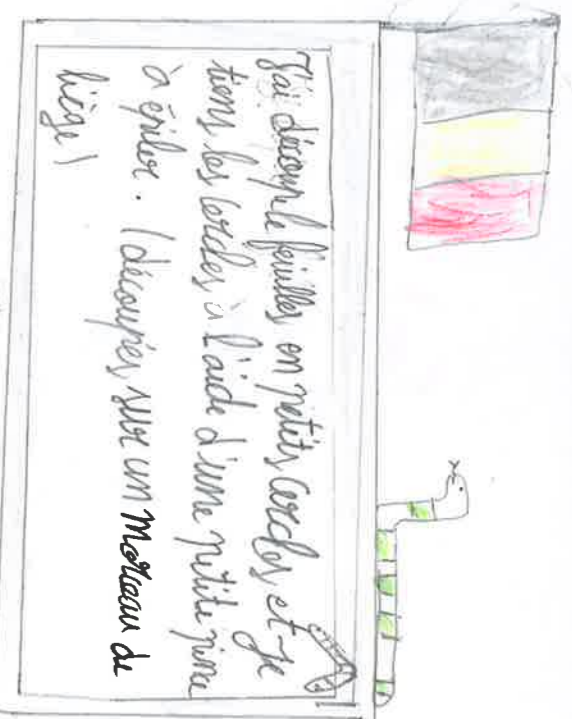 J'ai découpé le feuilles en petits cercles, et je
tiens les cercles à l'aide d'une petite pince
à épiler. (découpés sur un morceau de
liège)